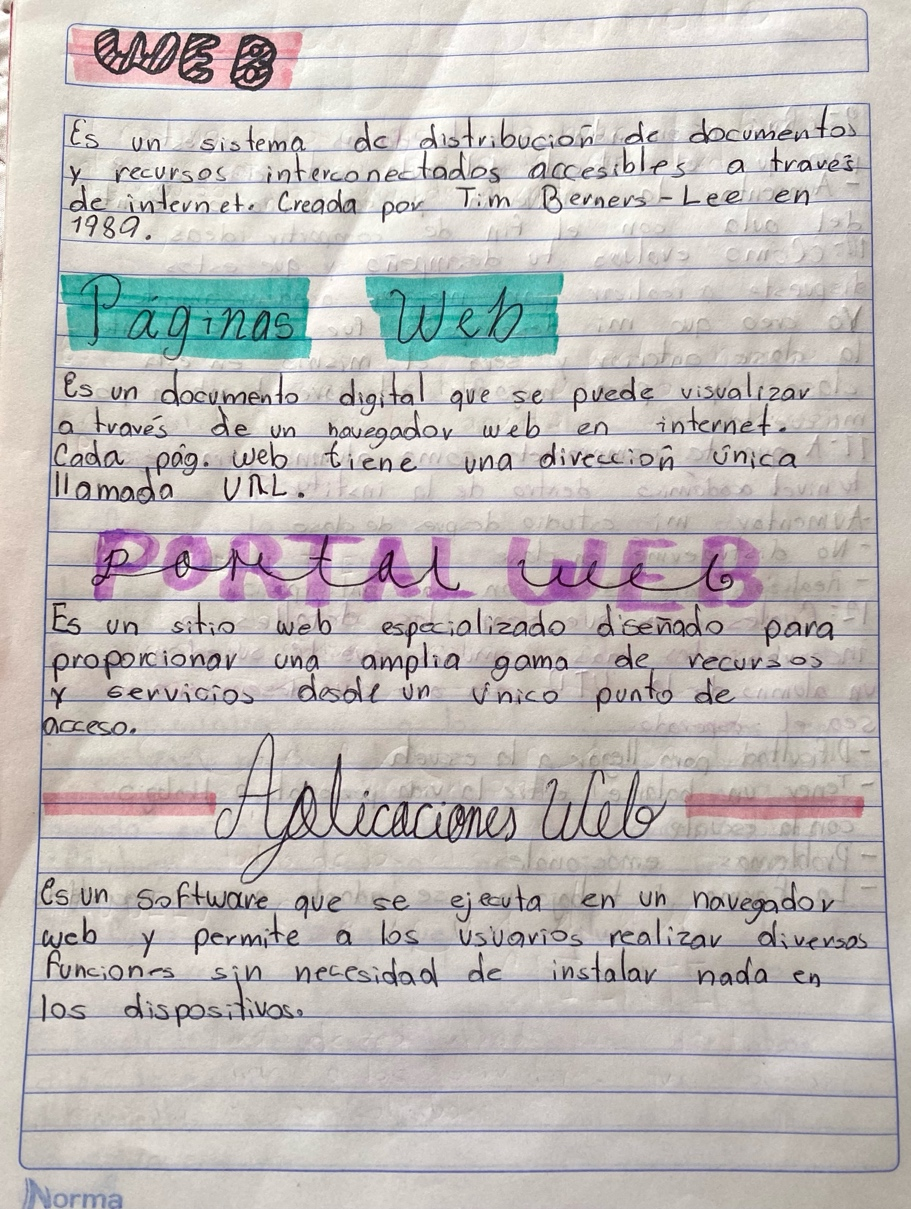 WEB
Es un sistema de distribución de documentos
y recursos interconectados accesibles a través
de internet. Creada por Tim Berners-Lee en
1989.
Páginas Web
Es un documento digital que se puede visualizar
a través de un navegador web en internet.
Cada pág. web tiene una dirección única
llamada URL.
PORTAL WEB
portal web
Es un sitio web especializado diseñado para
proporcionar una amplia gama de recursos
y servicios desde un único punto de
acceso.
Aplicaciones Web
Es un software que se ejecuta en un navegador
web y permite a los usuarios realizar diversas
funciones sin necesidad de instalar nada en
los dispositivos.
Norma